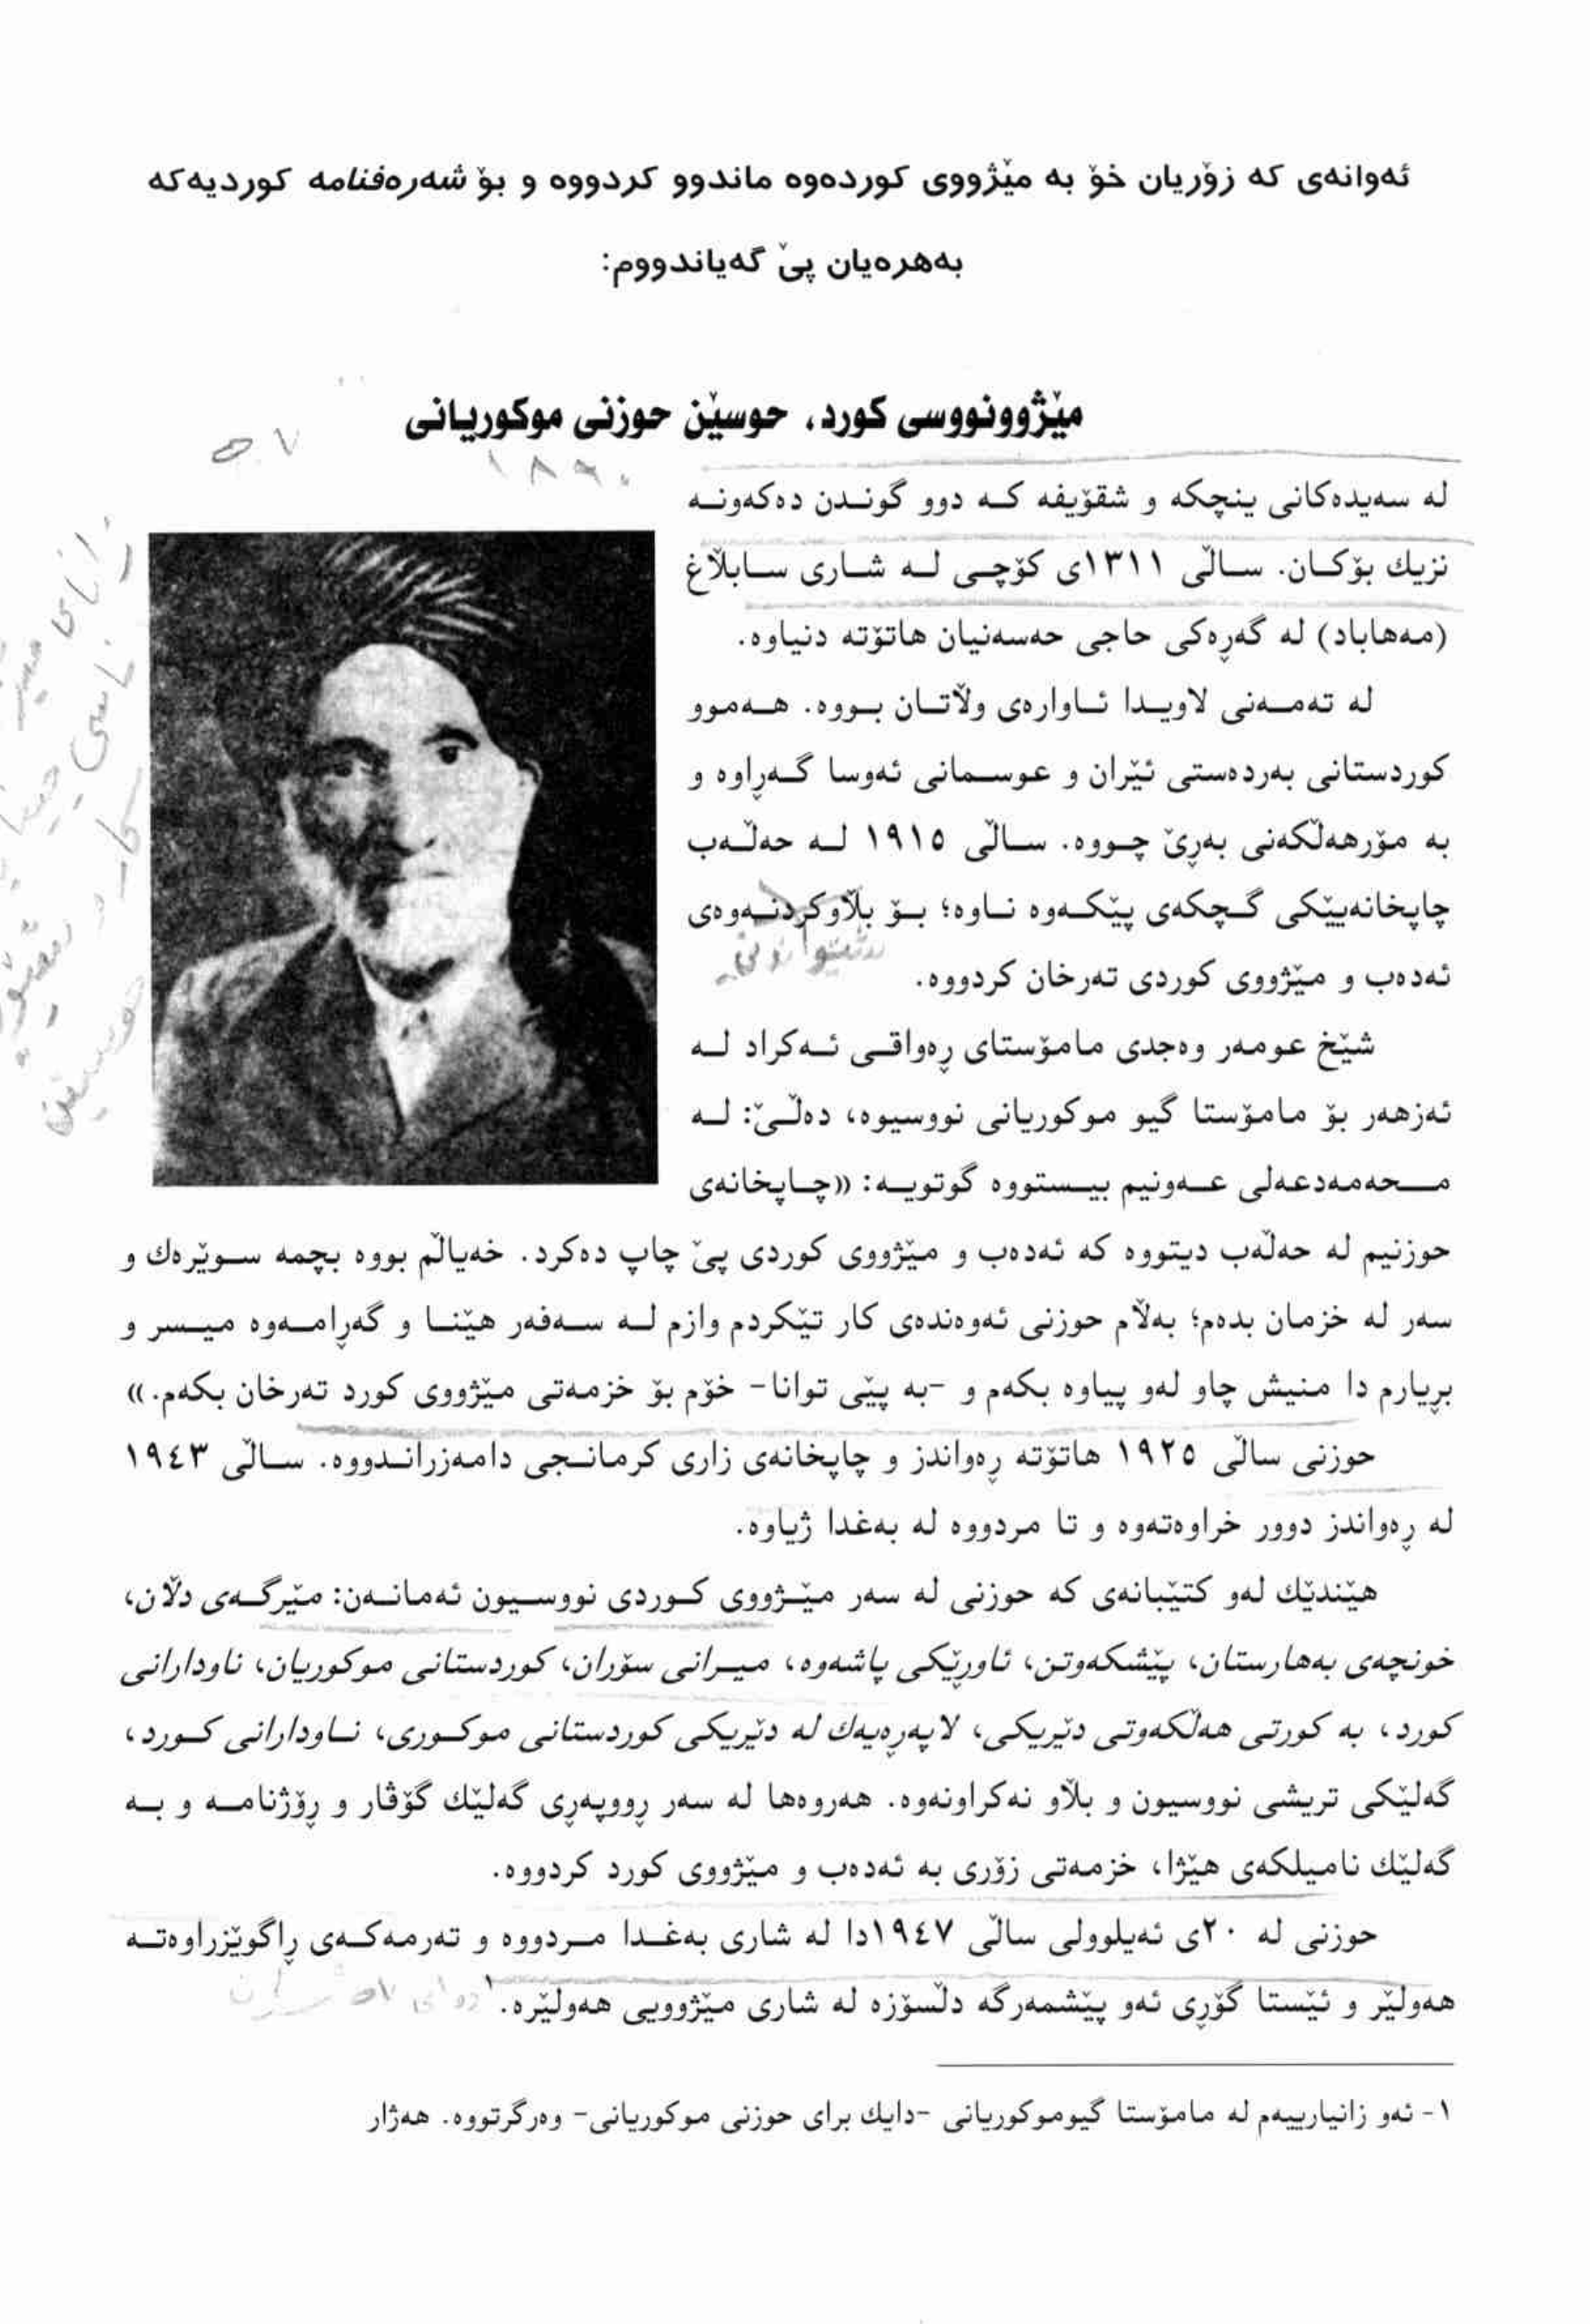 ئەوانەی کە زۆریان خۆ بە مێژووی کوردەوە ماندوو کردووە و بۆ شەرەفنامە کوردیەکە
بەهرەیان پێ گەیاندووم:
مێژوونووسی کورد، حوسێن حوزنی موکوریانی
٥٧
١٨٩٠
لە سەیدەکانی ینچکە و شقۆیفە کە دوو گوندن دەکەونە
نزیك بۆکان. ساڵی ١٣١١ی کۆچی لە شاری سابڵاغ
(مەهاباد) لە گەڕەکی حاجی حەسەنیان هاتۆتە دنیاوە.
لە تەمەنی لاویدا ئاوارەی وڵاتان بووە. هەموو
کوردستانی بەردەستی ئێران و عوسمانی ئەوسا گەڕاوە و
بە مۆرهەڵکەنی بەڕێ چووە. ساڵی ١٩١٥ لە حەڵەب
چاپخانەیێکی گچکەی پێکەوە ناوە؛ بۆ بڵاوکردنەوەی
ئەدەب و مێژووی کوردی تەرخان کردووە.
شێخ عومەر وەجدی مامۆستای ڕەواقی ئەکراد لە
ئەزهەر بۆ مامۆستا گیو موکوریانی نووسیوە، دەڵێ: لە
محەمەدعەلی عەونیم بیستووە گوتویە: «چاپخانەی
حوزنیم لە حەڵەب دیتووە کە ئەدەب و مێژووی کوردی پێ چاپ دەکرد. خەیاڵم بووە بچمە سوێرەك و
سەر لە خزمان بدەم؛ بەڵام حوزنی ئەوەندەی کار تێکردم وازم لە سەفەر هێنا و گەڕامەوە میسر و
بڕیارم دا منیش چاو لەو پیاوە بکەم و -بە پێی توانا- خۆم بۆ خزمەتی مێژووی کورد تەرخان بکەم.»
حوزنی ساڵی ١٩٢٥ هاتۆتە ڕەواندز و چاپخانەی زاری کرمانجی دامەزراندووە. ساڵی ١٩٤٣
لە ڕەواندز دوور خراوەتەوە و تا مردووە لە بەغدا ژیاوە.
هێندێك لەو کتێبانەی کە حوزنی لە سەر مێژووی کوردی نووسیون ئەمانەن: مێرگەی دڵان،
خونچەی بەهارستان، پێشکەوتن، ئاوڕێکی پاشەوە، میرانی سۆران، کوردستانی موکوریان، ناودارانی
کورد، بە کورتی هەڵکەوتی دێریکی، لاپەڕەیەك لە دێریکی کوردستانی موکوری، ناودارانی کورد،
گەلێکی تریشی نووسیون و بڵاو نەکراونەوە. هەروەها لە سەر ڕووپەڕی گەلێك گۆڤار و ڕۆژنامە و بە
گەلێك نامیلکەی هێژا، خزمەتی زۆری بە ئەدەب و مێژووی کورد کردووە.
حوزنی لە ٢٠ی ئەیلوولی ساڵی ١٩٤٧دا لە شاری بەغدا مردووە و تەرمەکەی ڕاگوێزراوەتە
هەولێر و ئێستا گۆڕی ئەو پێشمەرگە دڵسۆزە لە شاری مێژوویی هەولێرە.١
١- ئەو زانیارییەم لە مامۆستا گیوموکوریانی -دایك برای حوزنی موکوریانی- وەرگرتووە. هەژار